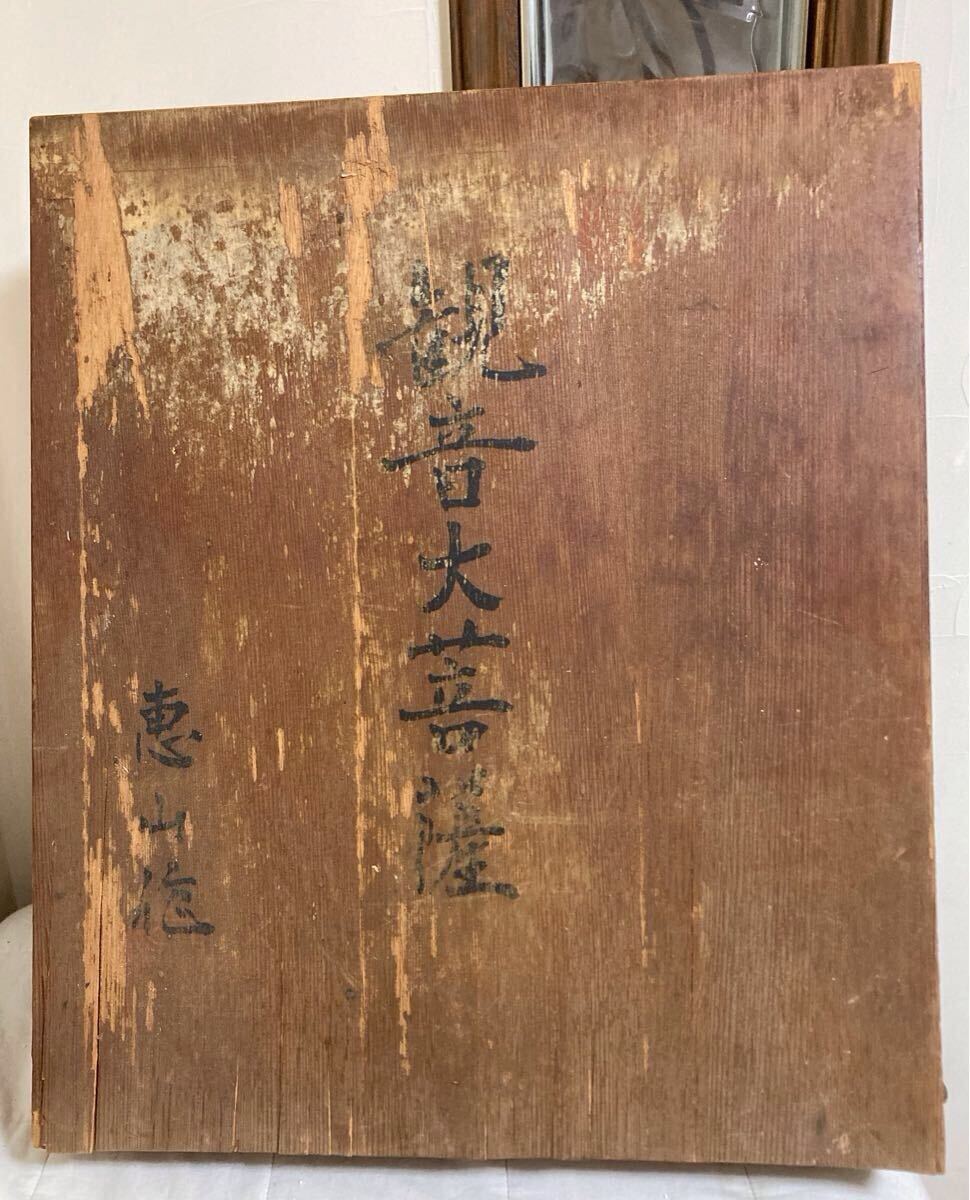 観音大菩薩
恵山作